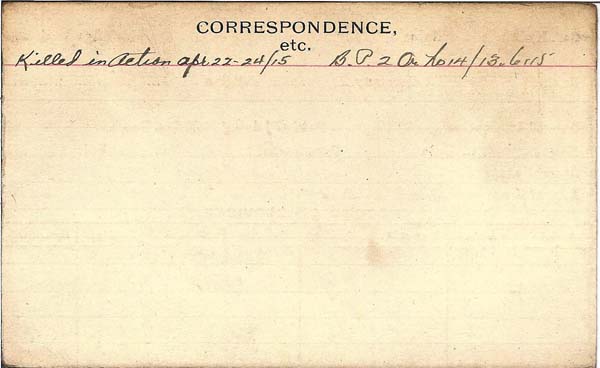 CORRESPONDENCE,
etc.
Killed in Action Apr 22-24/15 B.P. 2 Or. No 14/13.6.15